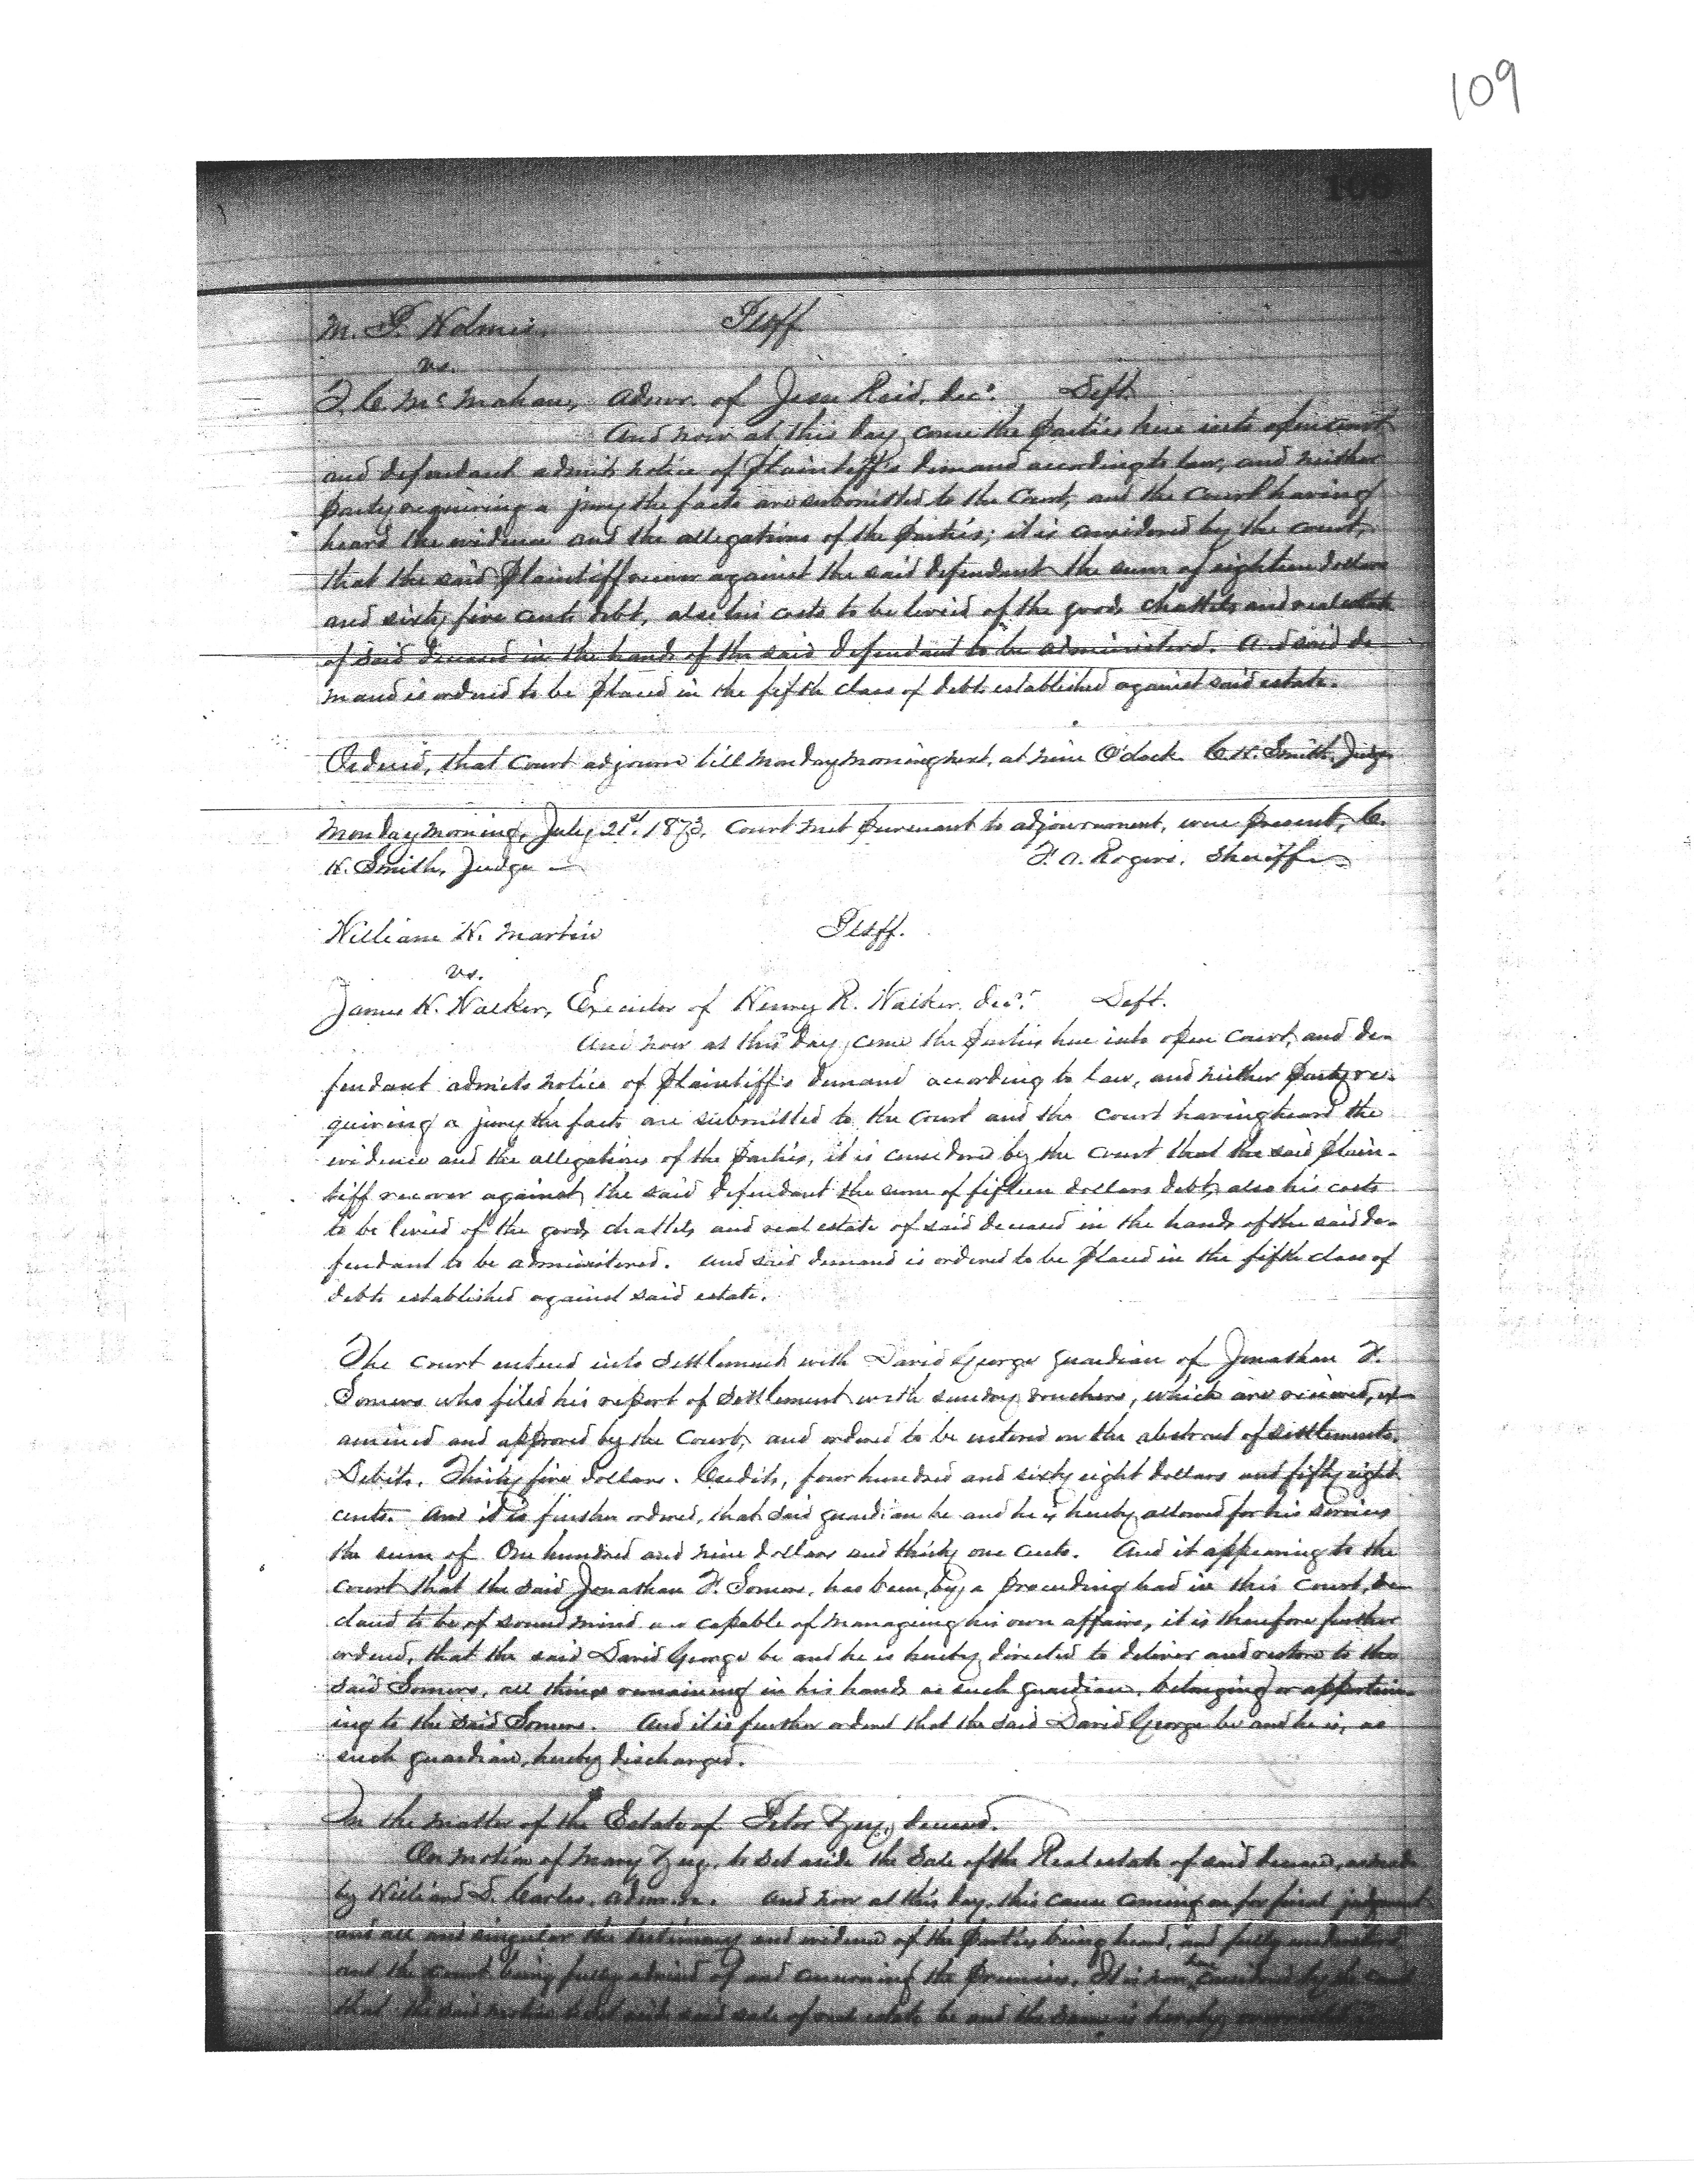 109
109
M. F. Holmes, Plaff
vs.
F. C. McMahan, Admr. of Jesse Reid, Decd. Deft.
And now at this day come the parties here into open court
and defendant admits notice of plaintiff's demand according to law, and neither
party requiring a jury the facts are submitted to the Court, and the Court having
heard the evidence and the allegations of the parties; it is considered by the court,
that the said plaintiff recover against the said defendant the sum of eighteen dollars
and sixty five cents debt, also his costs to be levied of the goods chattels and real estate
of said deceased in the hands of the said defendant to be administered. And said de-
mand is ordered to be placed in the fifth class of debts established against said estate.
Ordered, that Court adjourn till Monday morning next, at nine O'clock. C. H. Smith, Judge
Monday morning, July, 21st 1873. Court met pursuant to adjournment, were present, C.
H. Smith, Judge — F. A. Rogers, Sheriff
William H. Martin Plaff.
vs.
James H. Walker, Executor of Henry R. Walker, Decd. Deft.
And now at this day, come the parties here into open court, and de-
fendant admits notice of plaintiff's demand according to law, and neither party re-
quiring a jury the facts are submitted to the court and the court having heard the
evidence and the allegations of the parties, it is considered by the court that the said plain-
tiff recover against the said defendant the sum of fifteen dollars debt, also his costs
to be levied of the goods chattels and real estate of said deceased in the hands of the said de-
fendant to be administered. And said demand is ordered to be placed in the fifth class of
debts established against said estate.
The court entered into settlement with David George guardian of Jonathan F.
Somers who filed his report of settlement with sundry vouchers, which are received, ex-
amined and approved by the Court, and ordered to be entered on the abstract of settlements.
Debits, Thirty five dollars. Credits, four hundred and sixty eight dollars and fifty eight
cents. And it is further ordered, that said guardian be and he is hereby allowed for his services
the sum of One hundred and nine dollars and thirty one cents. And it appearing to the
court that the said Jonathan F. Somers, has been, by a proceeding had in this Court, de-
clared to be of sound mind and capable of managing his own affairs, it is therefore further
ordered, that the said David George be and he is hereby directed to deliver and restore to the
said Somers, all things remaining in his hands as such guardian, belonging or appertain-
ing to the said Somers. And it is further ordered that the said David George be and he is, as
such guardian, hereby discharged.
In the matter of the Estate of Peter Zug, deceased.
On motion of Mary Zug, to set aside the Sale of the Real estate of said deceased,
by William S. Carter, Admr. And now at this day, this cause coming on for final judgment
and all and singular the testimony and evidence of the parties being heard, and fully understood
and the court being fully advised of and concerning the premises, It is now considered by the court
that the said motion to set aside said sale of real estate be and the same is hereby overruled